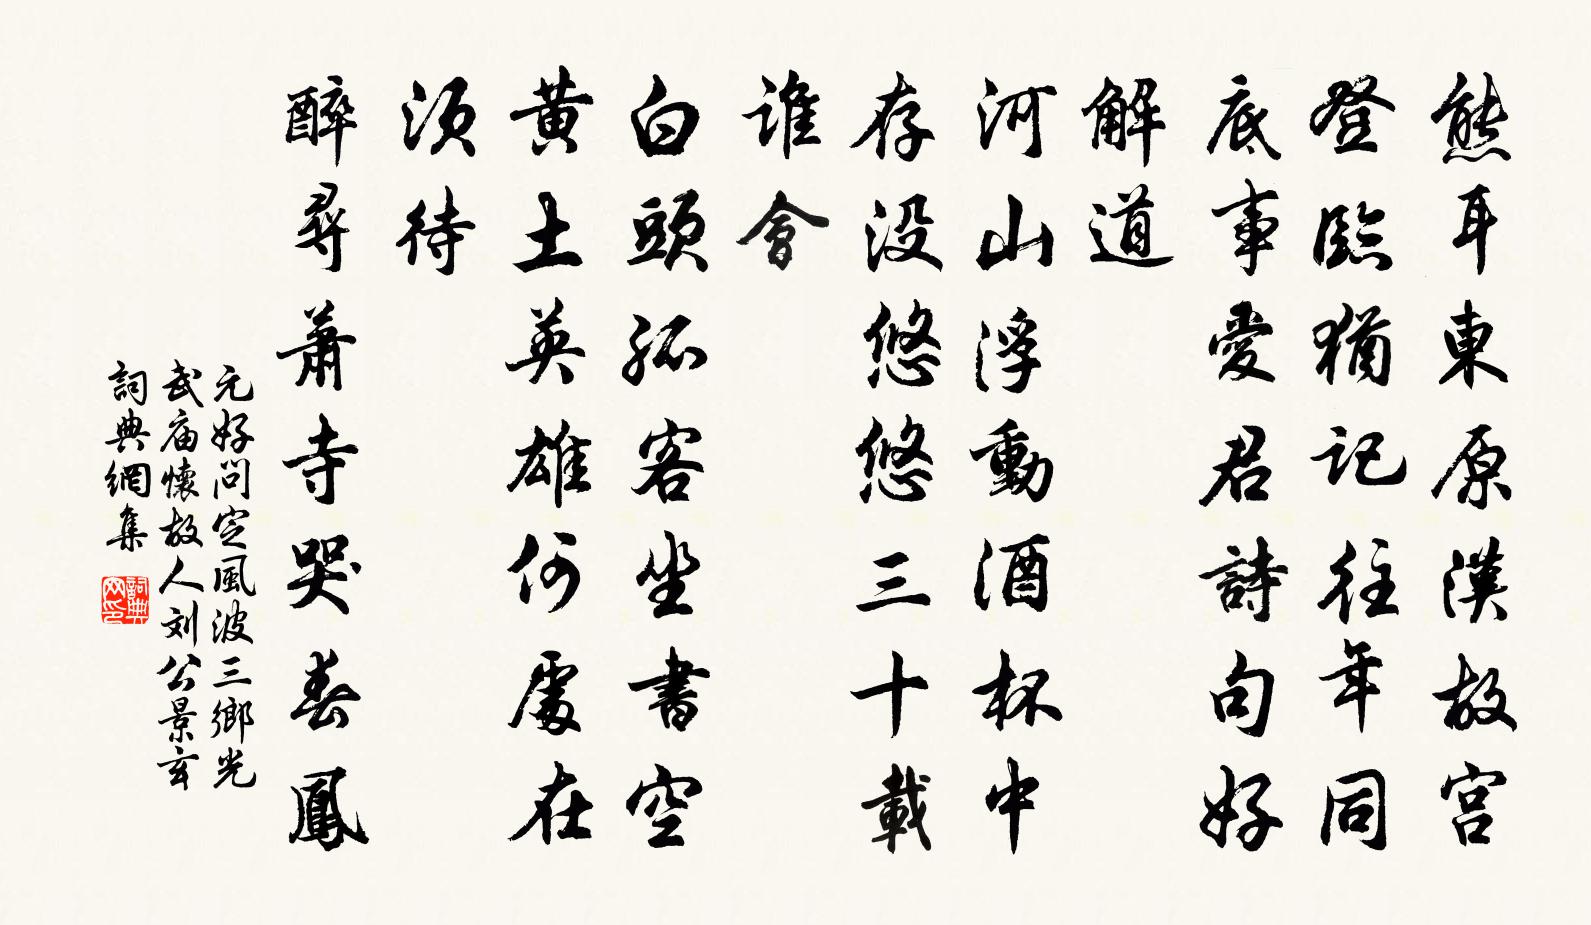 熊耳東原漢故宮
登臨猶記往年同
底事愛君詩句好
解道
河山浮動酒杯中
存没悠悠三十載
誰會
白頭孤客坐書空
黄土英雄何處在
須待
醉尋蕭寺哭春鳳
元好问定風波三鄉光
武庙懷故人刘公景玄
詞典網集
詞典网印